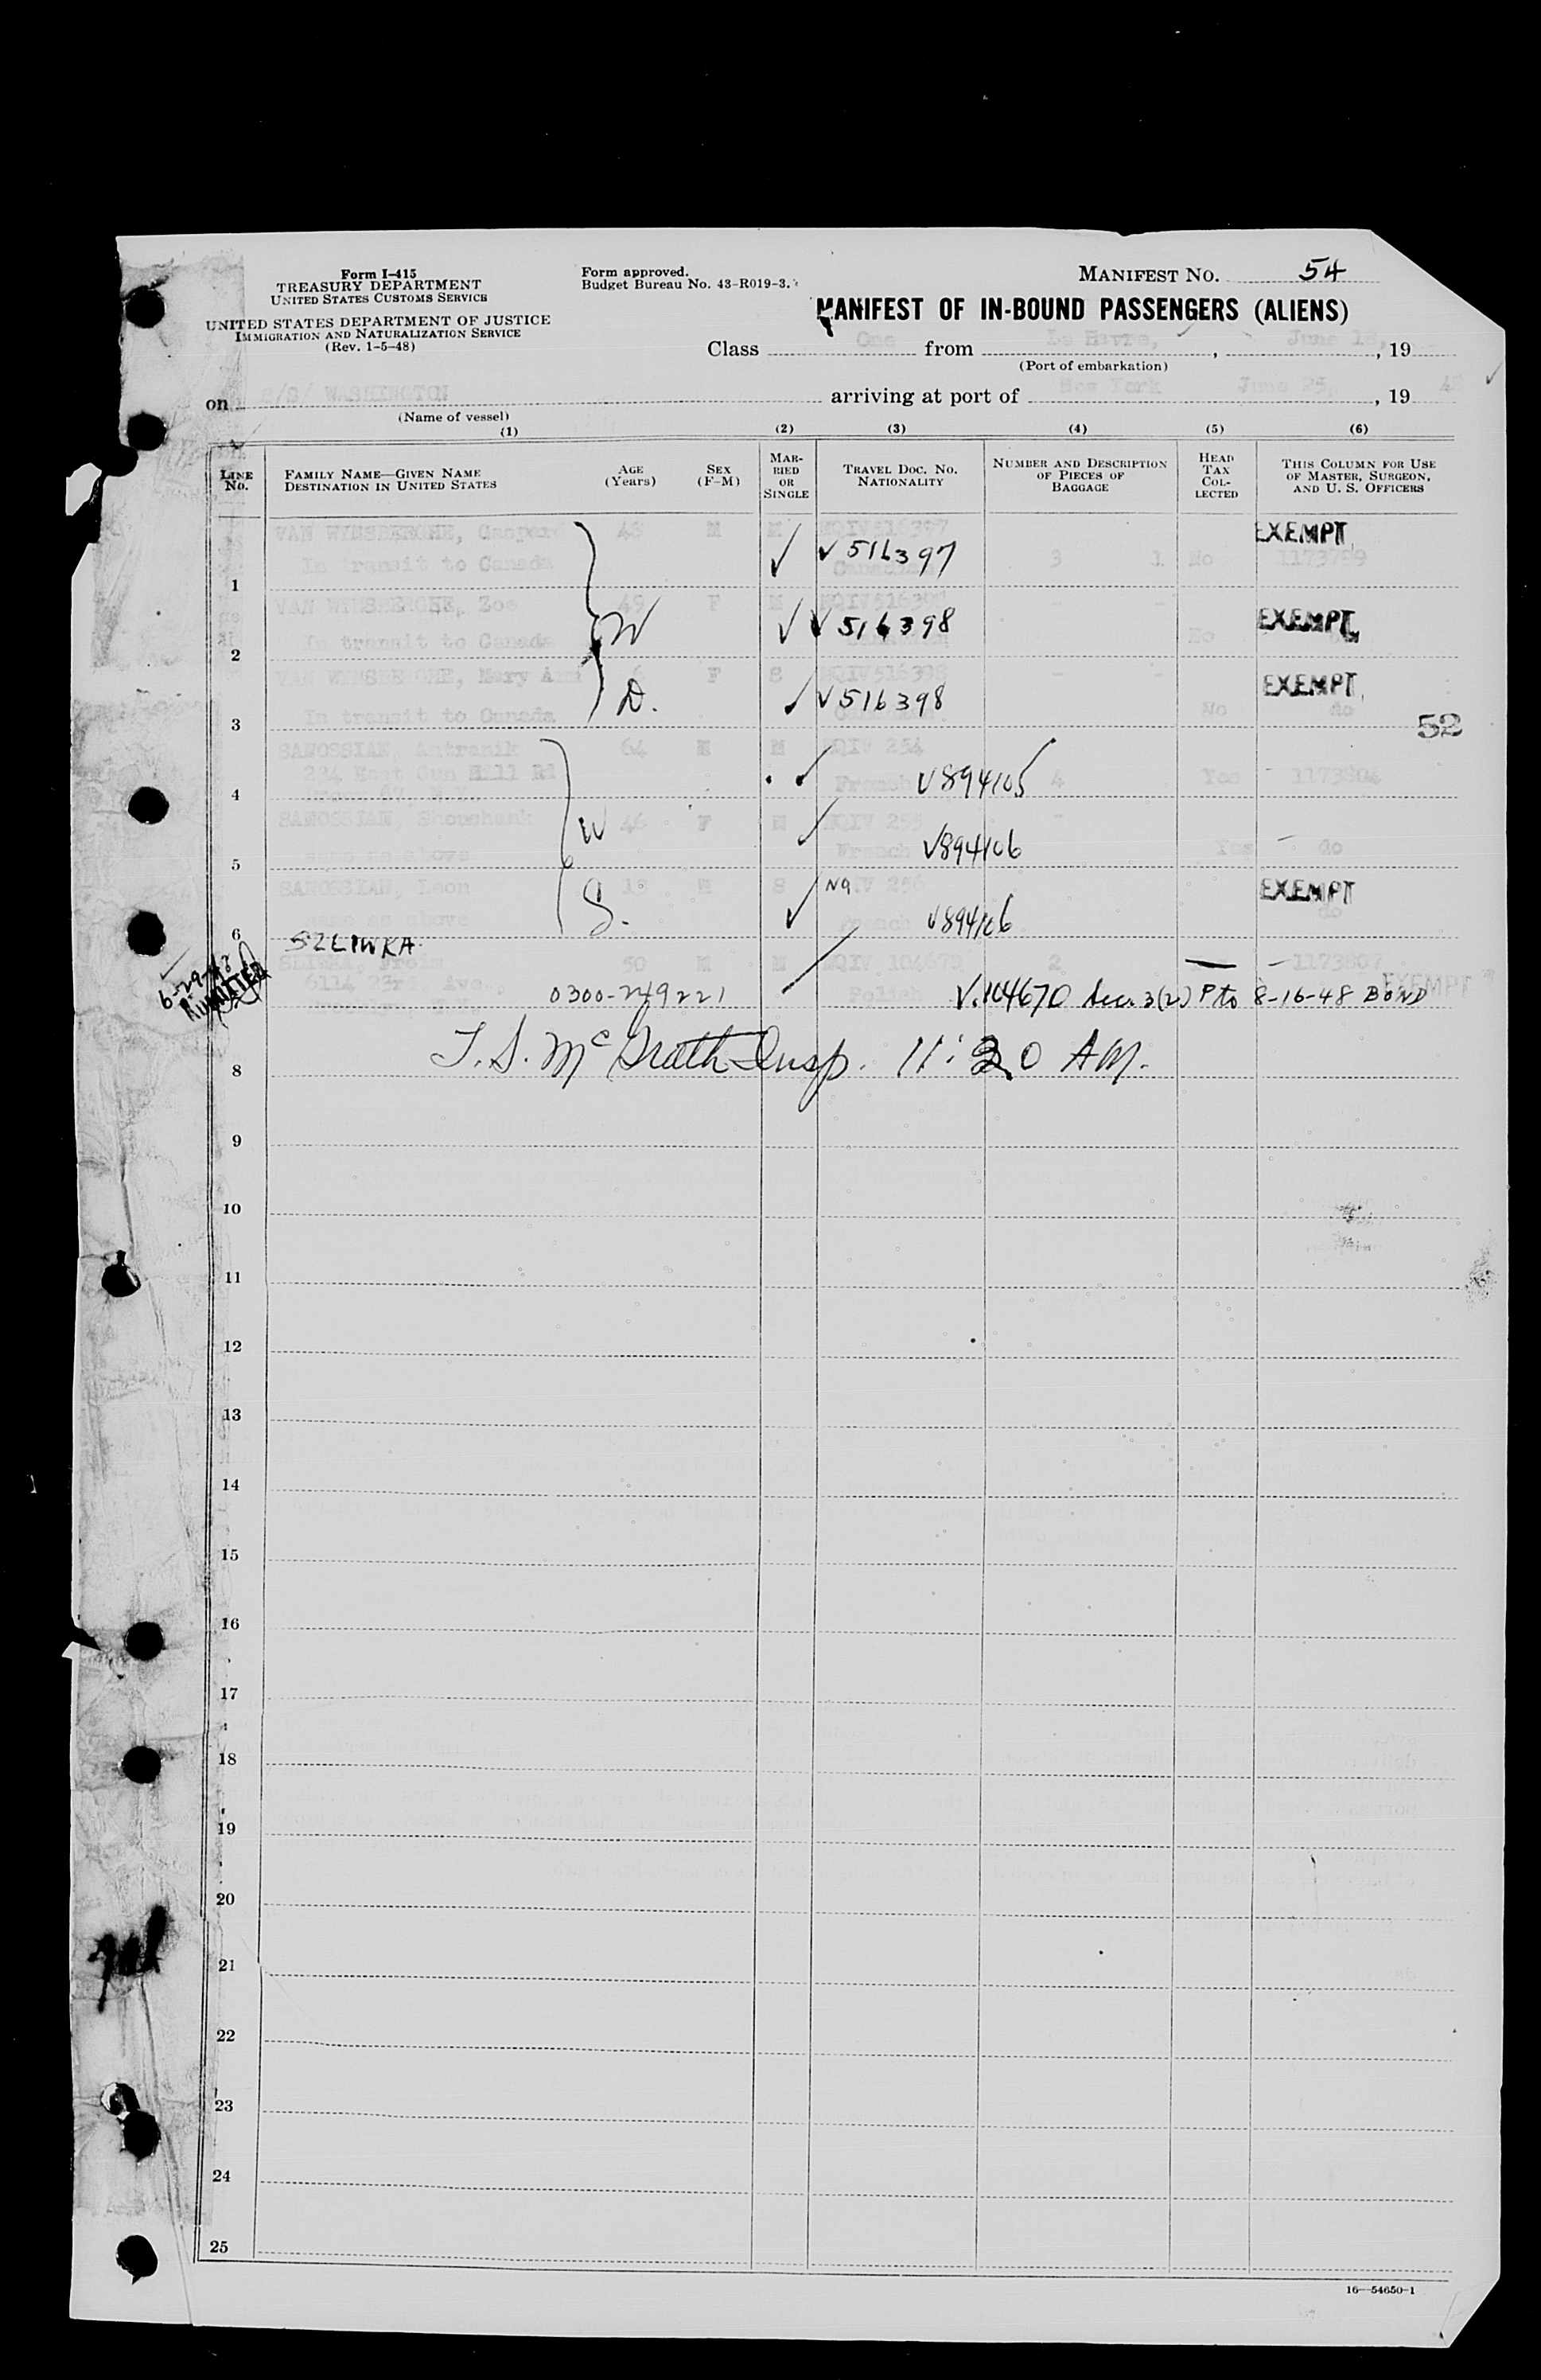 Form I-415
TREASURY DEPARTMENT
UNITED STATES CUSTOMS SERVICE
UNITED STATES DEPARTMENT OF JUSTICE
IMMIGRATION AND NATURALIZATION SERVICE
(Rev. 1-5-48)
Form approved.
Budget Bureau No. 43-R019-3.
MANIFEST NO. 54
MANIFEST OF IN-BOUND PASSENGERS (ALIENS)
Class One from Le Havre, , June 18, , 19
(Port of embarkation)
on S/S/ WASHINGTON arriving at port of New York June 25, , 19 48
(Name of vessel)
(1) (2) (3) (4) (5) (6)
LINE NO. FAMILY NAME—GIVEN NAME DESTINATION IN UNITED STATES AGE (Years) SEX (F-M) MARRIED OR SINGLE TRAVEL DOC. NO. NATIONALITY NUMBER AND DESCRIPTION OF PIECES OF BAGGAGE HEAD TAX COLLECTED THIS COLUMN FOR USE OF MASTER, SURGEON, AND U. S. OFFICERS
VAN WYNSBERGHE, 48 M M NQIV516397 EXEMPT
In transit to Canada ✓ ✓ 516397 Canadian 3 1 No 1173799
1
VAN WYNSBERGHE, Zoe 49 F M NQIV516398 - - EXEMPT
In transit to Canada W ✓ ✓ 516398 No
2
VAN WYNSBERGHE, Mary Ann 6 F S NQIV516398 - - EXEMPT
In transit to Canada D. ✓ ✓ 516398 No do
3 52
SANOSSIAN, Antranik 64 M M NQIV 254
234 East Gun Hill Rd ✓ French ✓ 894105 4 Yes 1173804
4
SANOSSIAN, 46 F M NQIV 255 -
same as above W ✓ French ✓ 894106 Yes do
5
SANOSSIAN, Leon 18 M S NQ IV 256 EXEMPT
same as above S. ✓ French ✓ 894106 do
6
SZLIWKA
50 M M NQIV 2 1173807
6-29-48 ADMITTED
6114 23rd Ave., 0300-249221 V.104670 Sec. 3(2) P to 8-16-48 BOND EXEMPT
T. S. McGrath Insp. 11:20 AM.
8
9
10
11
12
13
14
15
16
17
18
19
20
21
22
23
24
25
16—54650-1